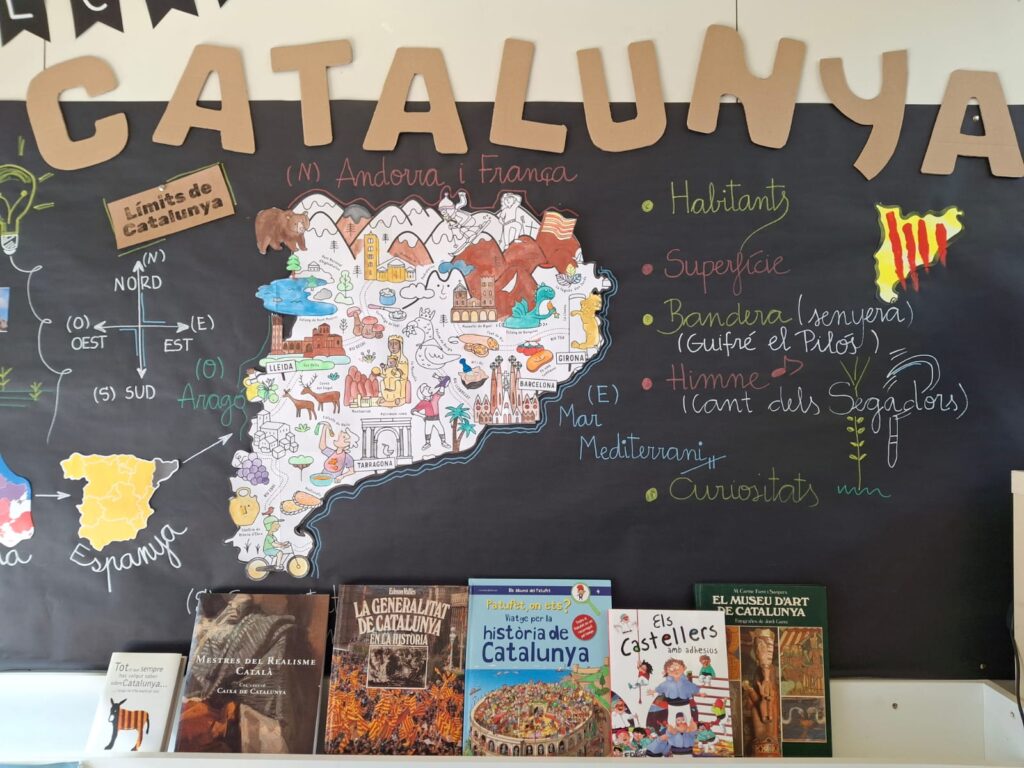 CATALUNYA
Límits de
Catalunya
(N)
NORD
(O)
OEST
(E)
EST
(S) SUD
(N) Andorra i França
(O)
Aragó
(E)
Mar
Mediterrani
LLEIDA
GIRONA
BARCELONA
TARRAGONA
Montserrat
Espanya
Habitants
Superfície
Bandera (senyera)
(Guifré el Pilós)
Himne
(Cant dels Segadors)
Curiositats
Tot el que sempre
has volgut saber
sobre Catalunya...
MESTRES DEL REALISME
CATALÀ
CAIXA DE CATALUNYA
LA GENERALITAT
DE CATALUNYA
EN LA HISTÒRIA
Patufet, on ets?
Viatge per la
història de
Catalunya
Els
Castellers
amb adhesius
EL MUSEU D'ART
DE CATALUNYA